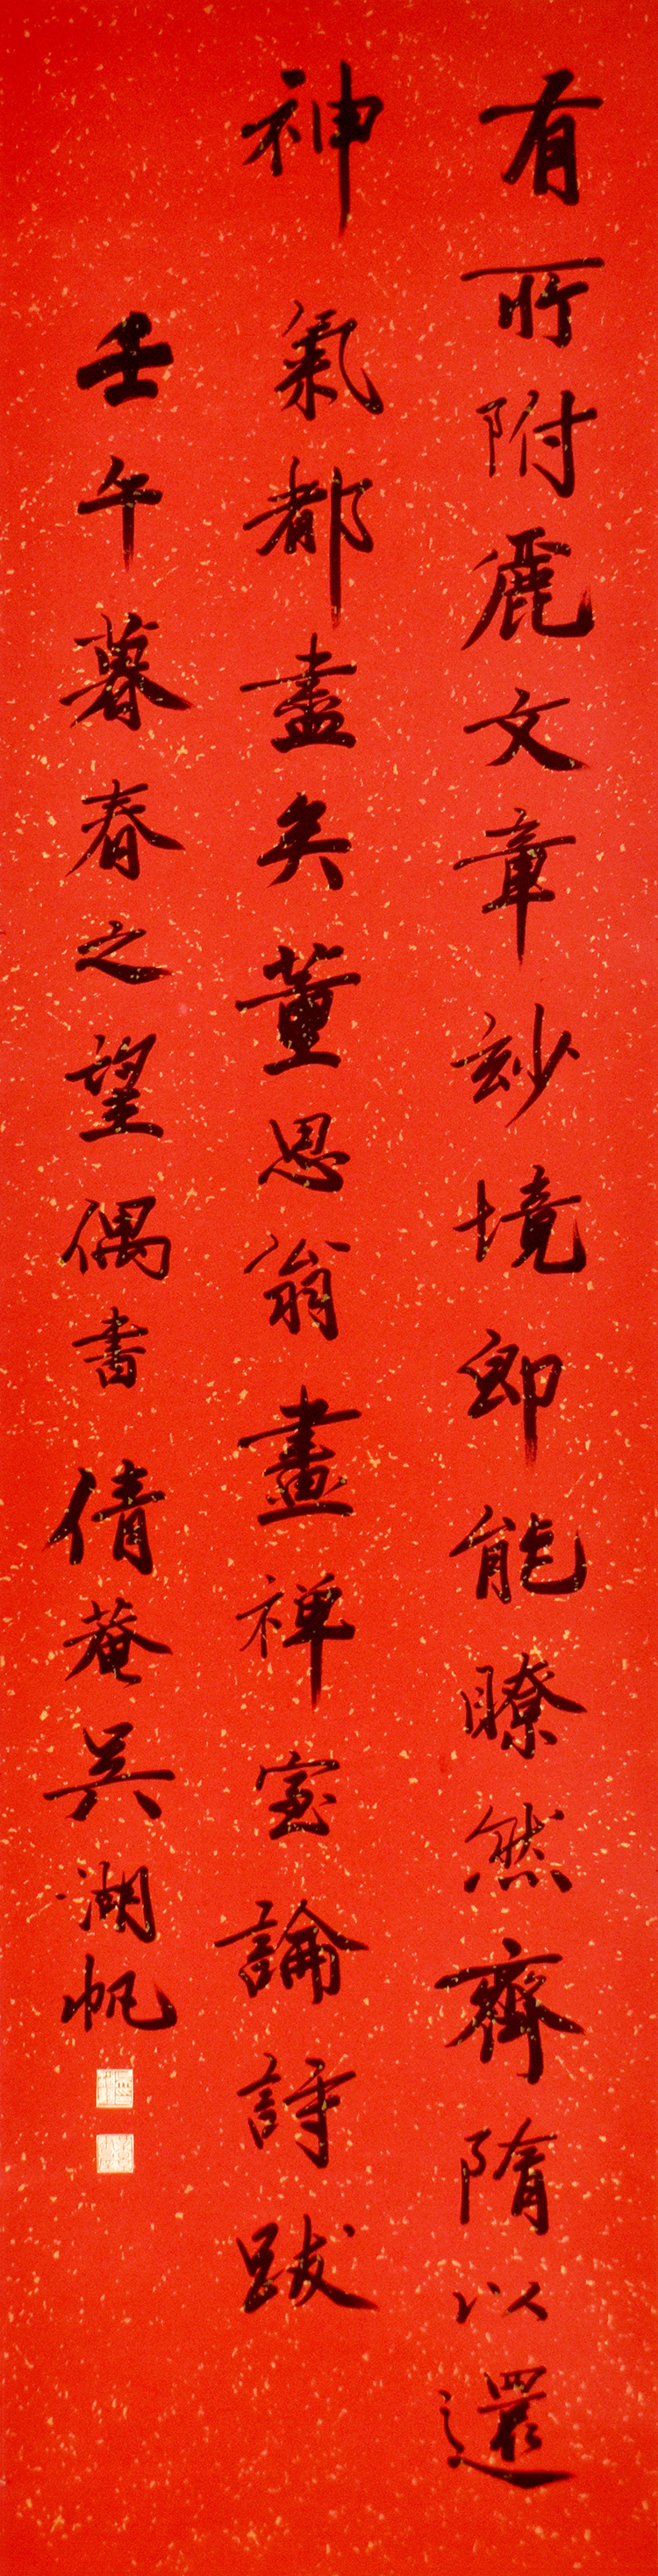 有所附儷文章玅境即能瞭然齊隋以還
神氣都盡矣董思翁畫禅室論詩跋
壬午暮春之望偶書倩菴吴湖帆